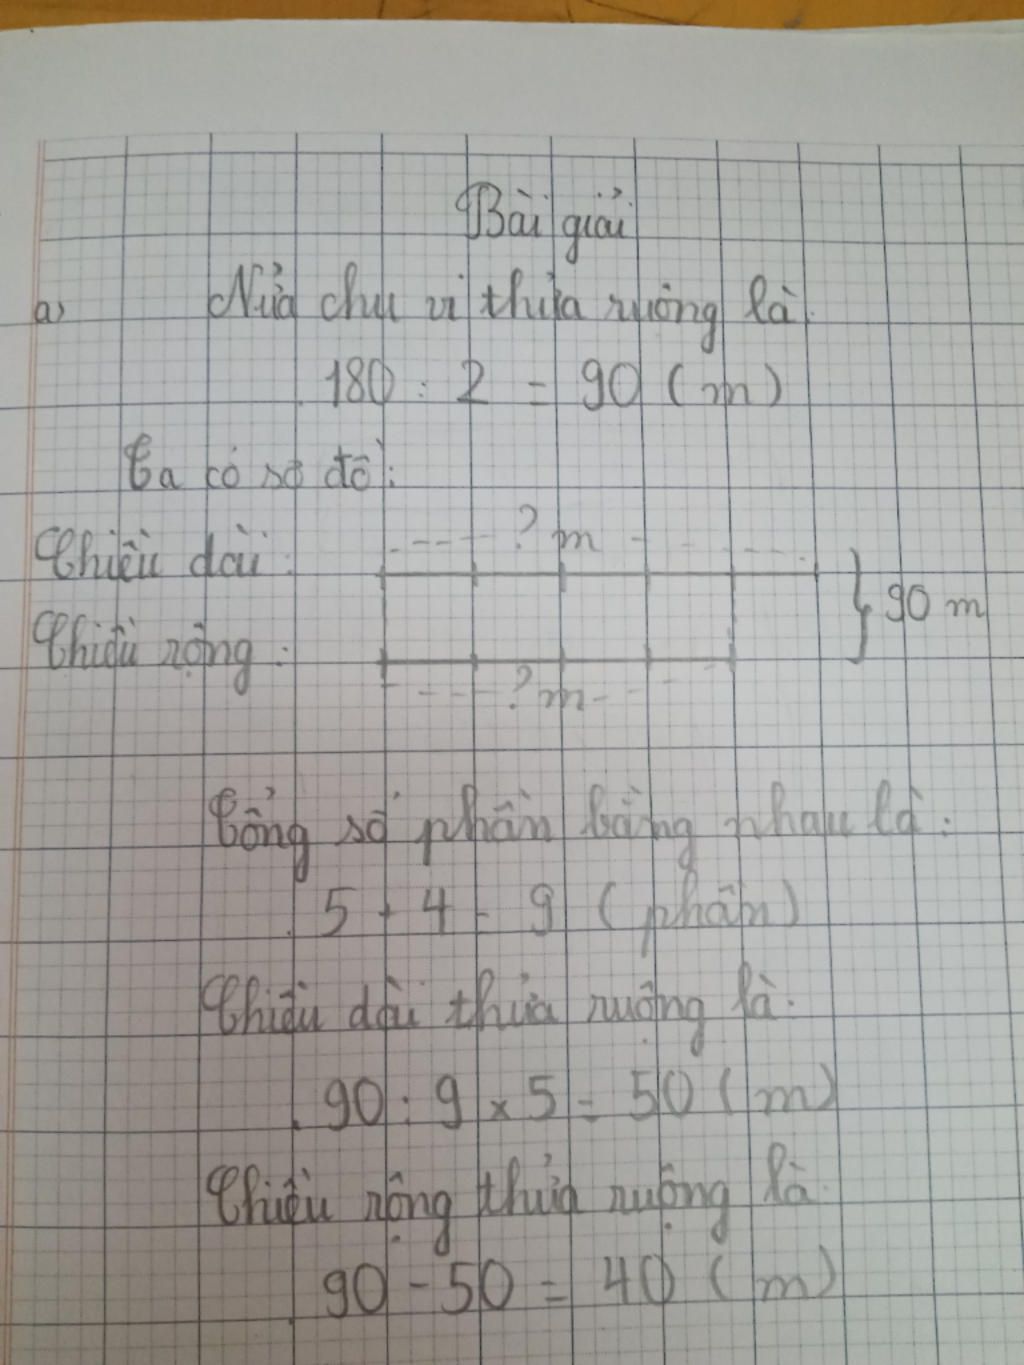 Bài giải
a) Nửa chu vi thửa ruộng là:
180 : 2 = 90 (m)
Ta có sơ đồ:
? m
Chiều dài:
90 m
Chiều rộng:
? m
Tổng số phần bằng nhau là:
5 + 4 = 9 (phần)
Chiều dài thửa ruộng là:
90 : 9 x 5 = 50 (m)
Chiều rộng thửa ruộng là:
90 - 50 = 40 (m)